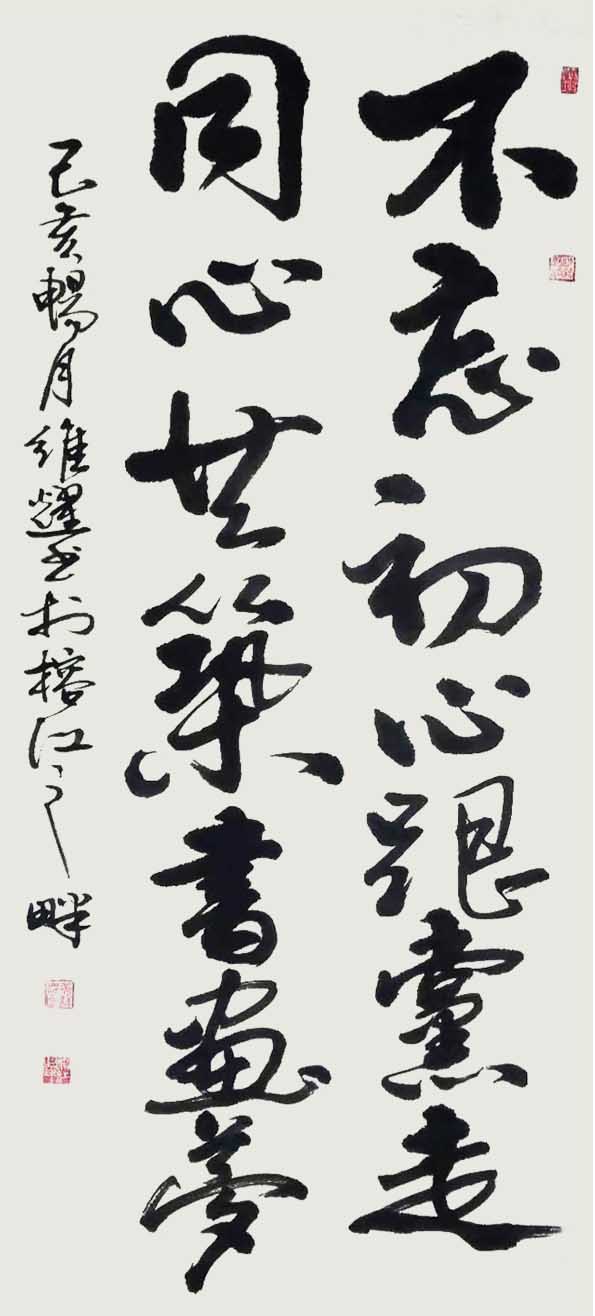 不忘初心跟黨走
同心共築書畫夢
己亥暢月維耀書於榕江之畔